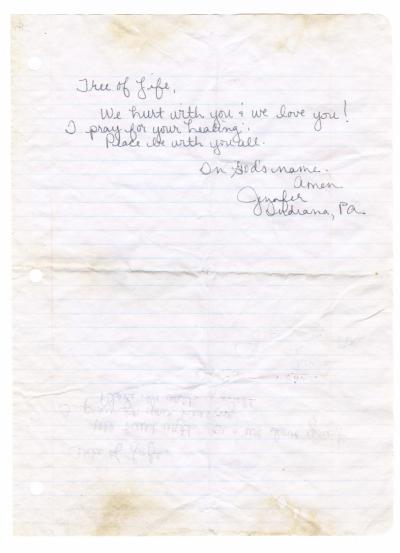 Tree of Life,
We hurt with you & we love you!
I pray for your healing.
Peace be with you all.
In God's name.
Amen
Jennifer
Indiana, PA.